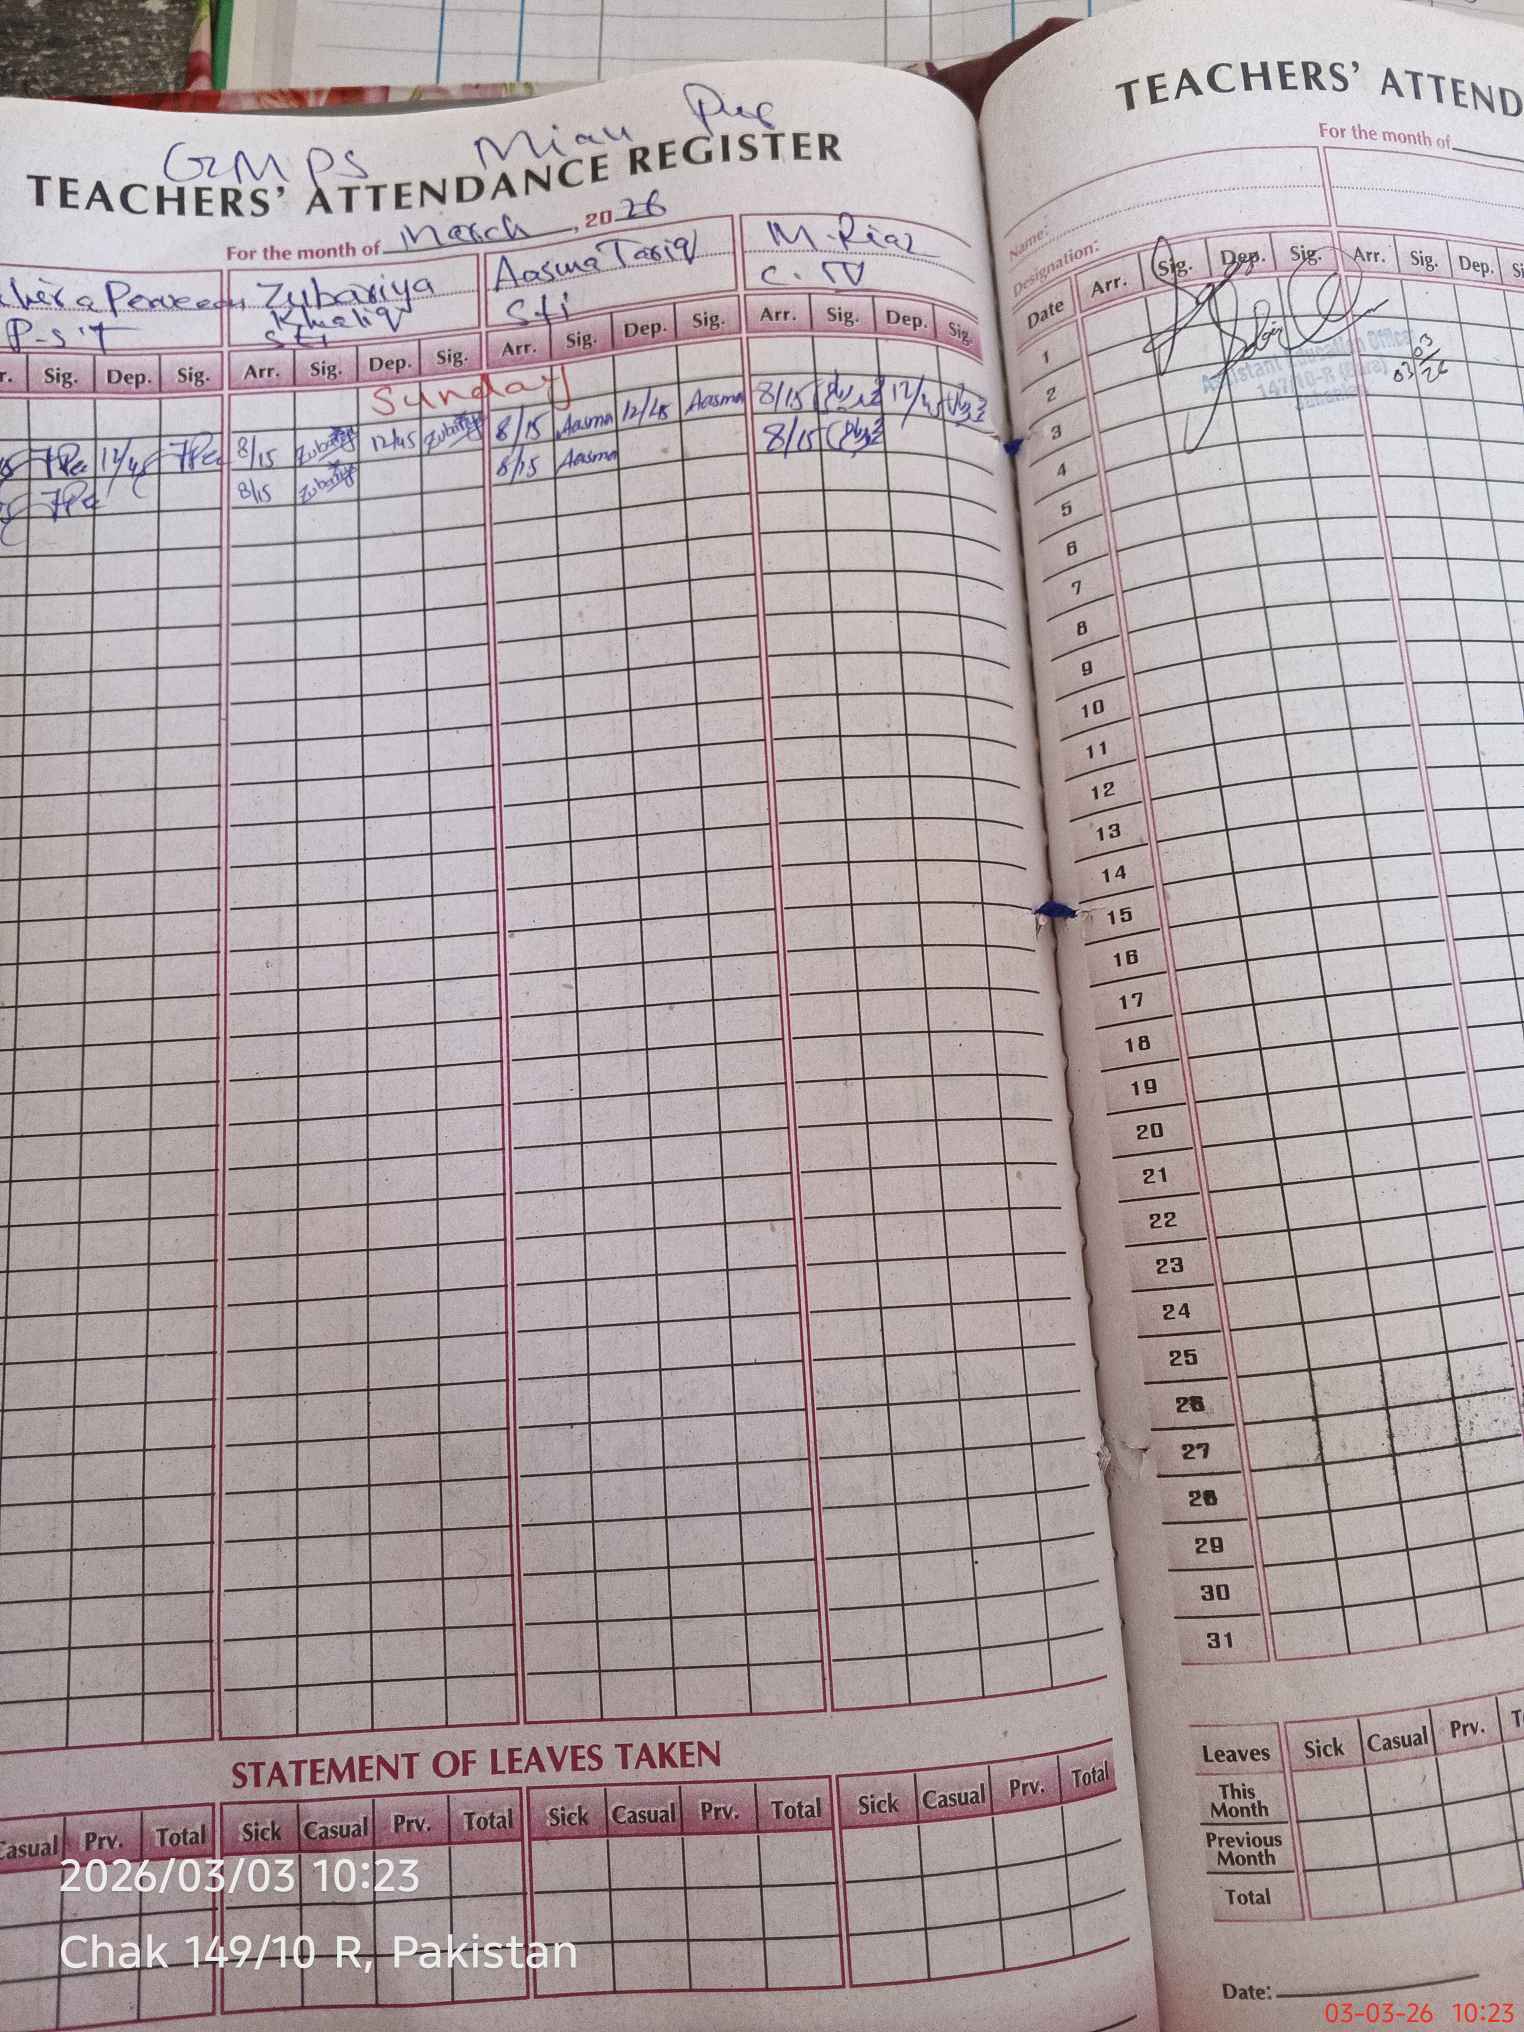 GMPS Mian Pur
TEACHERS' ATTENDANCE REGISTER
For the month of March, 2026
Perveen Zubariya Khaliq Aasma Tariq M. Riaz
P.S.T Sti Sti C. IV
Sig. Dep. Sig. Arr. Sig. Dep. Sig. Arr. Sig. Dep. Sig. Arr. Sig. Dep. Sig.
Sunday
12/45 8/15 Zubariya 12/45 Zubariya 8/15 Aasma 12/45 Aasma 8/15 12/45
8/15 Zubariya 8/15 Aasma 8/15
STATEMENT OF LEAVES TAKEN
Casual Prv. Total Sick Casual Prv. Total Sick Casual Prv. Total Sick Casual Prv. Total
TEACHERS' ATTEND
For the month of
Name:
Designation:
Date Arr. Sig. Dep. Sig. Arr. Sig. Dep.
Assistant Education Office
147/10-R
03/03/26
1
2
3
4
5
6
7
8
9
10
11
12
13
14
15
16
17
18
19
20
21
22
23
24
25
26
27
28
29
30
31
Leaves Sick Casual Prv.
This Month
Previous Month
Total
Date:
2026/03/03 10:23
Chak 149/10 R, Pakistan
03-03-26 10:23